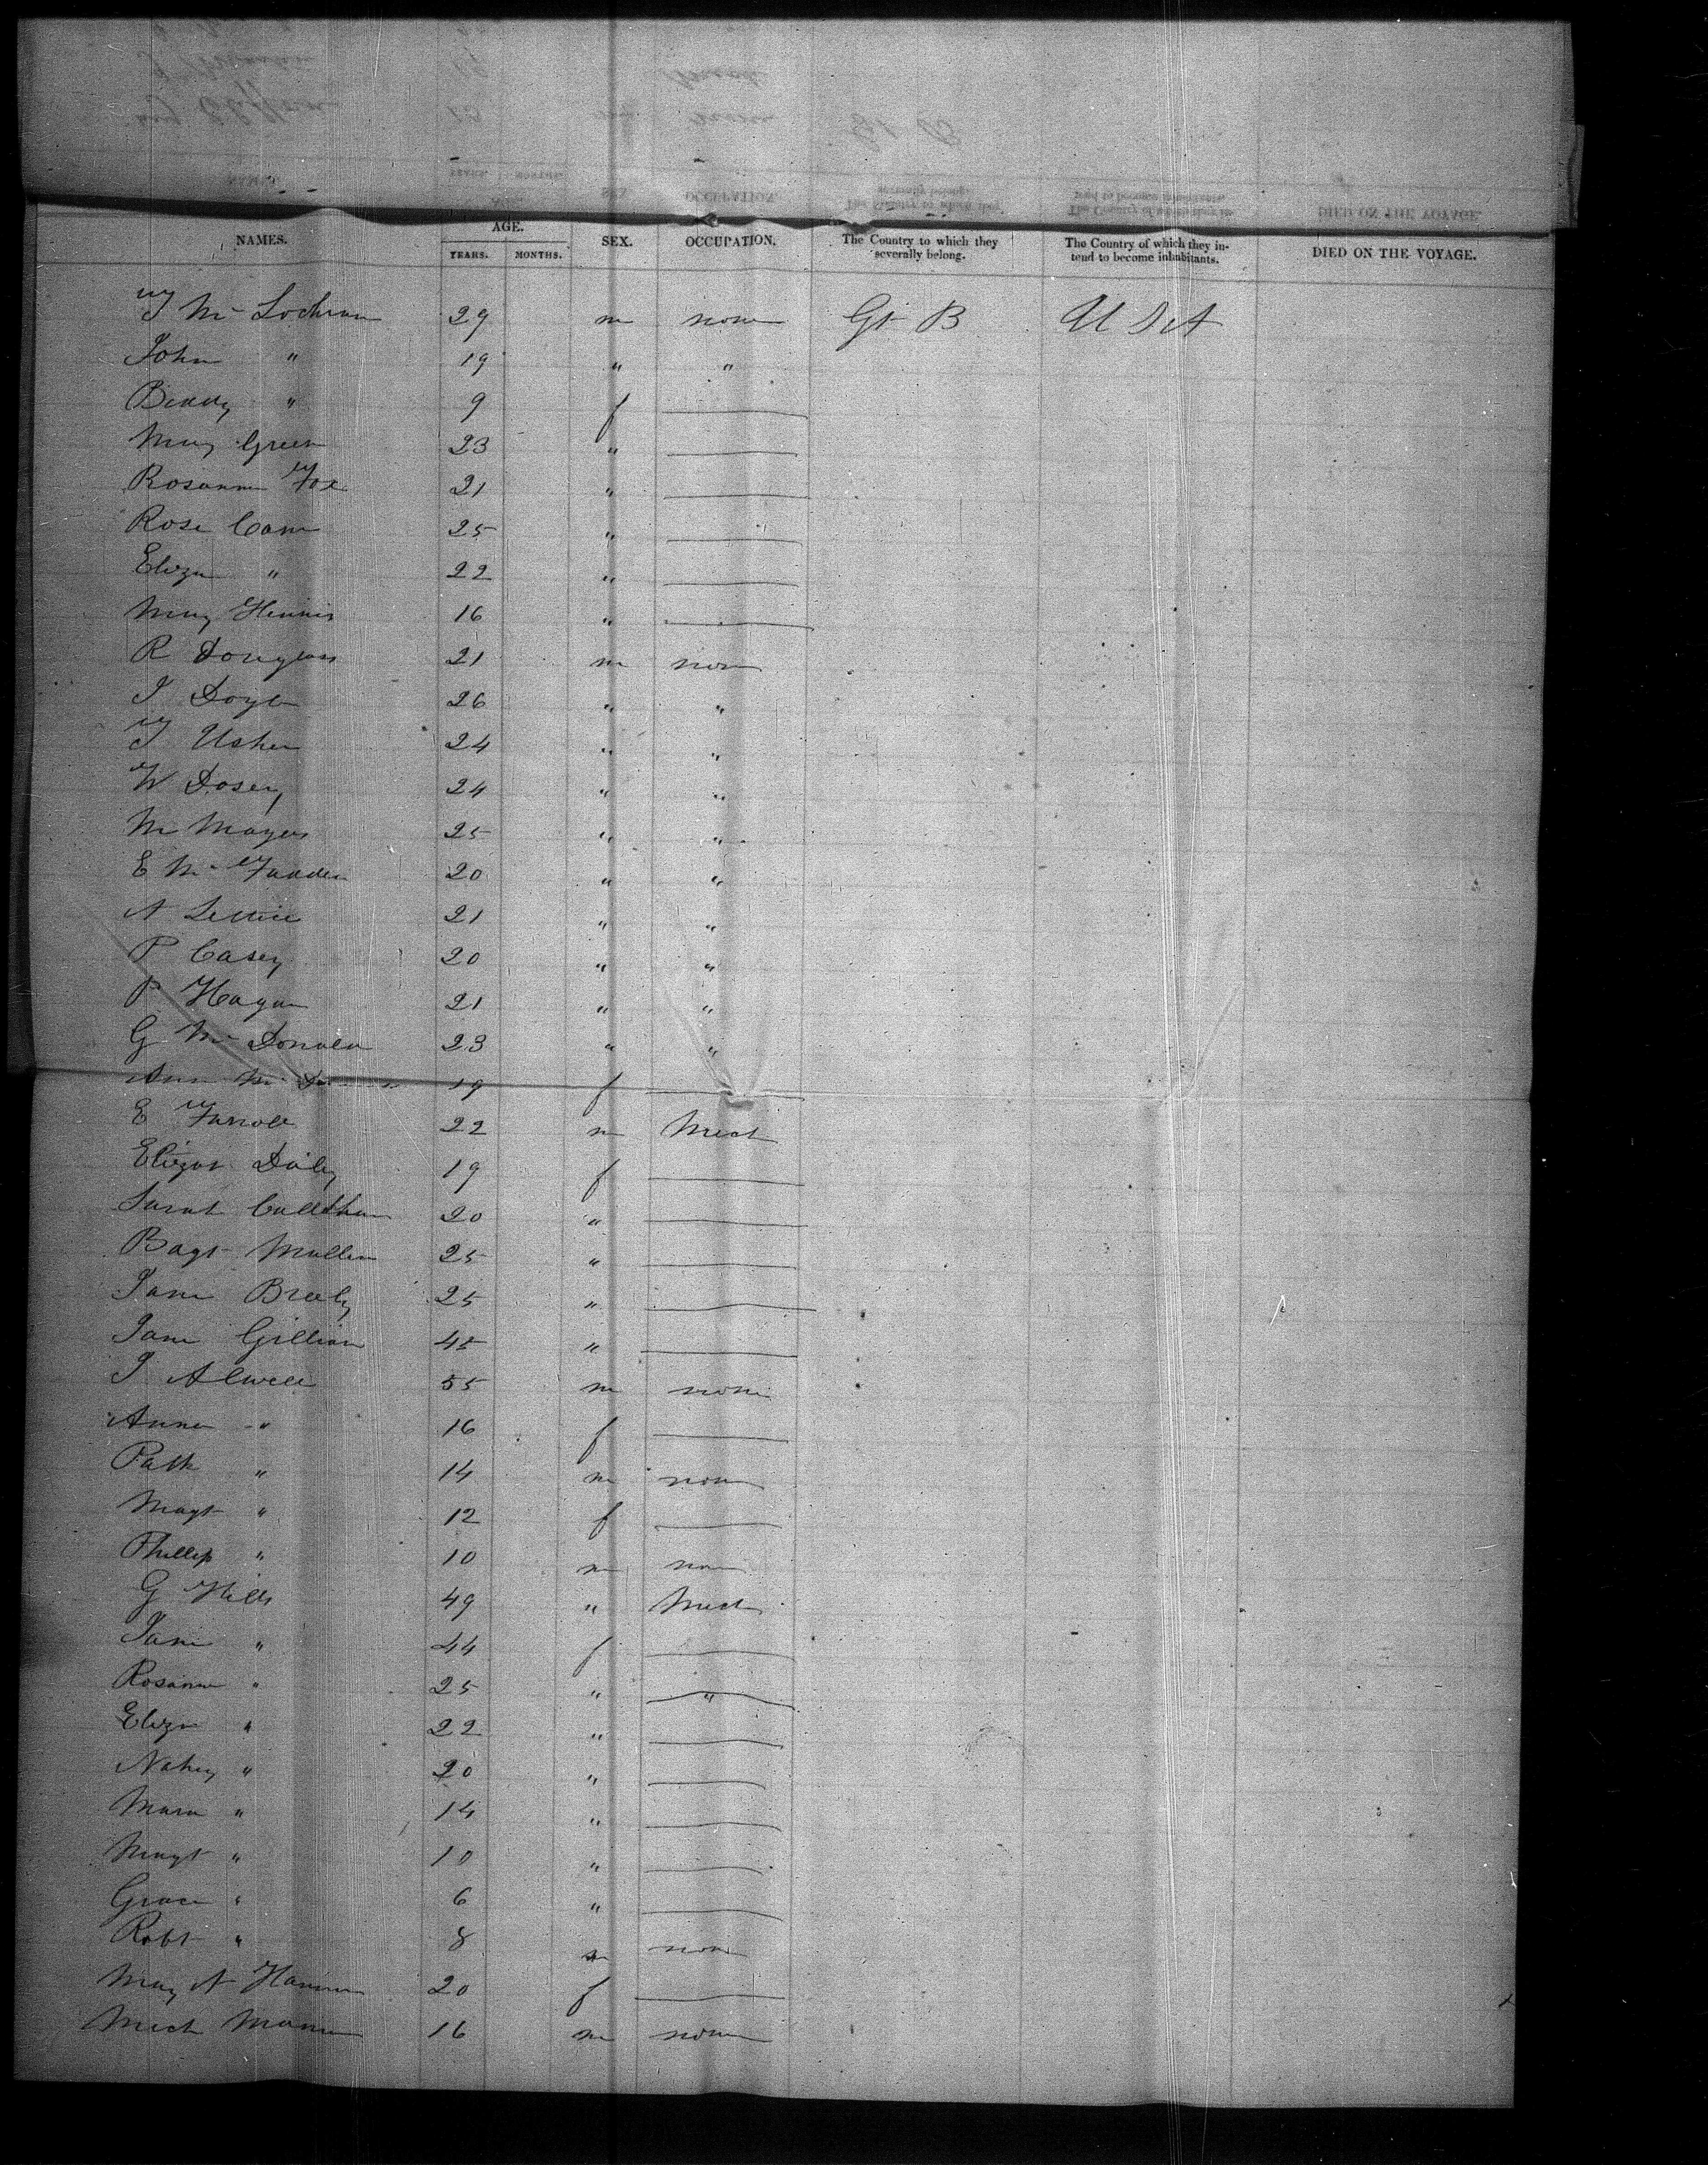 NAMES. AGE. SEX. OCCUPATION. The Country to which they severally belong. The Country of which they intend to become inhabitants. DIED ON THE VOYAGE.
YEARS. MONTHS.
T Mc Lochran 29 m none Gt B U S A
John " 19 " "
Biddy " 9 f
Mary Green 23 "
Rosanna Fox 21 "
Rose Cam 25 "
Eliza " 22 "
Mary Hennis 16 "
R Douglass 21 m none
J Doyle 26 " "
T Usher 24 " "
W Dosey 24 " "
M Mayers 25 " "
E Mc Fadden 20 " "
A 21 " "
P Casey 20 " "
P Hagan 21 " "
G Mc Donald 23 " "
Ann Mc 19 f
E Farrell 22 m Mech
Elizat Daily 19 f
Sarah 20 "
Magt Mullen 25 "
Jane 25 "
Jane Gillian 45 "
J Alwell 55 m none
Anne " 16 f
Patk " 14 m none
Magt " 12 f
Phillip " 10 m none
G Hills 49 " Mech
Jane " 44 f
Rosanna " 25 " "
Eliza " 22 "
" 20 "
Maria " 14 "
Magt " 10 "
Grace " 6 "
Robt " 8 m none
Mary A 20 f
Mich 16 m none